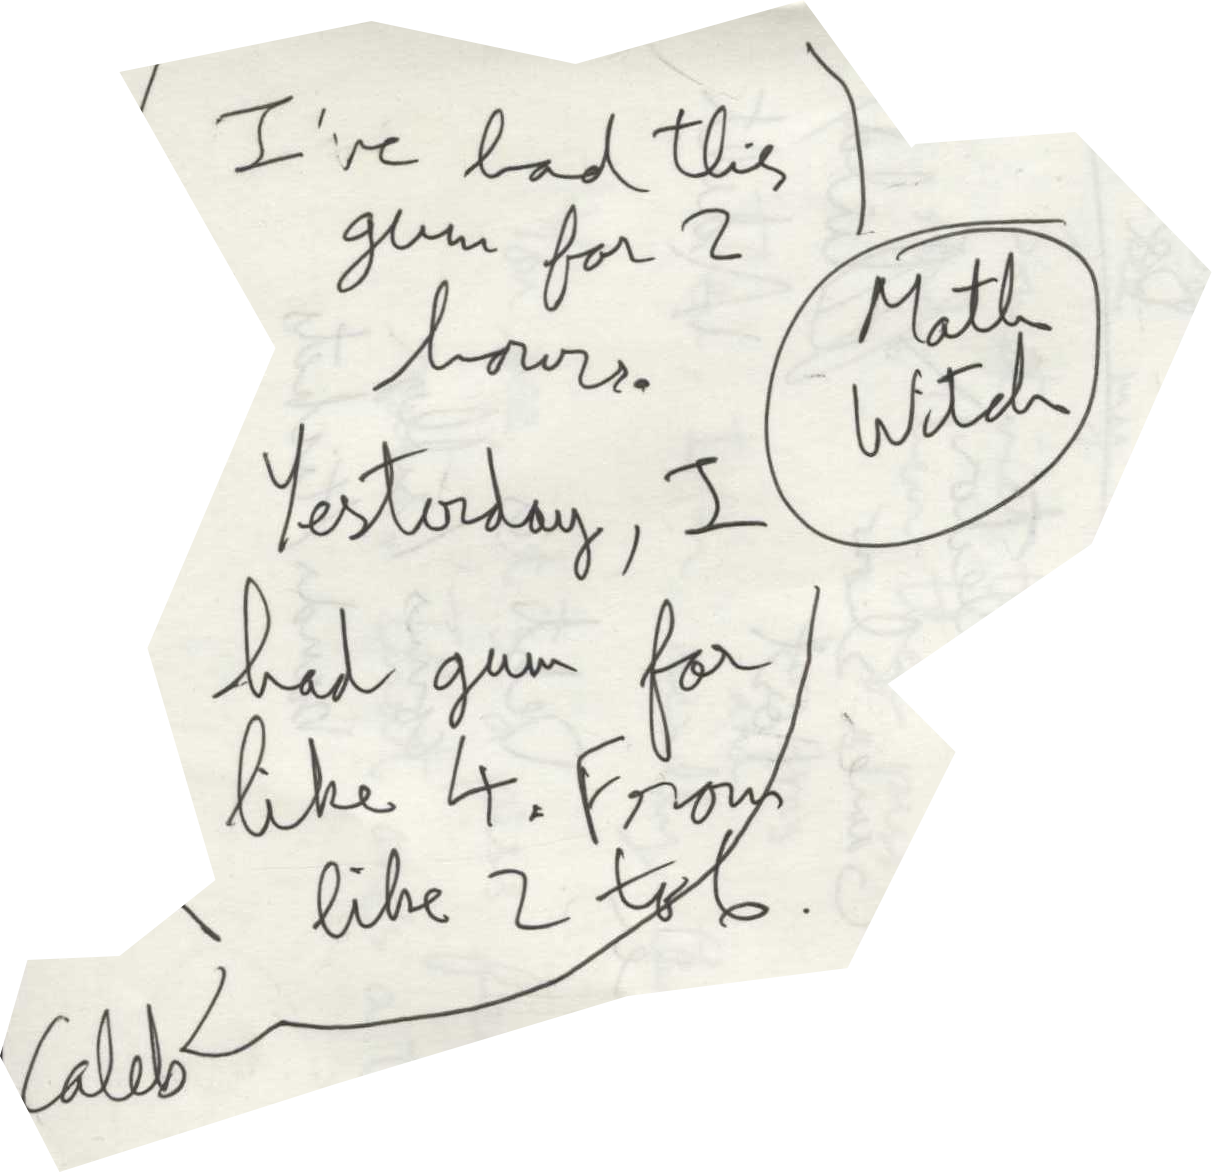 I've had this
gum for 2
hours.
Yesterday, I
had gum for
like 4. From
like 2 to 6.
Math
Witch
Caleb